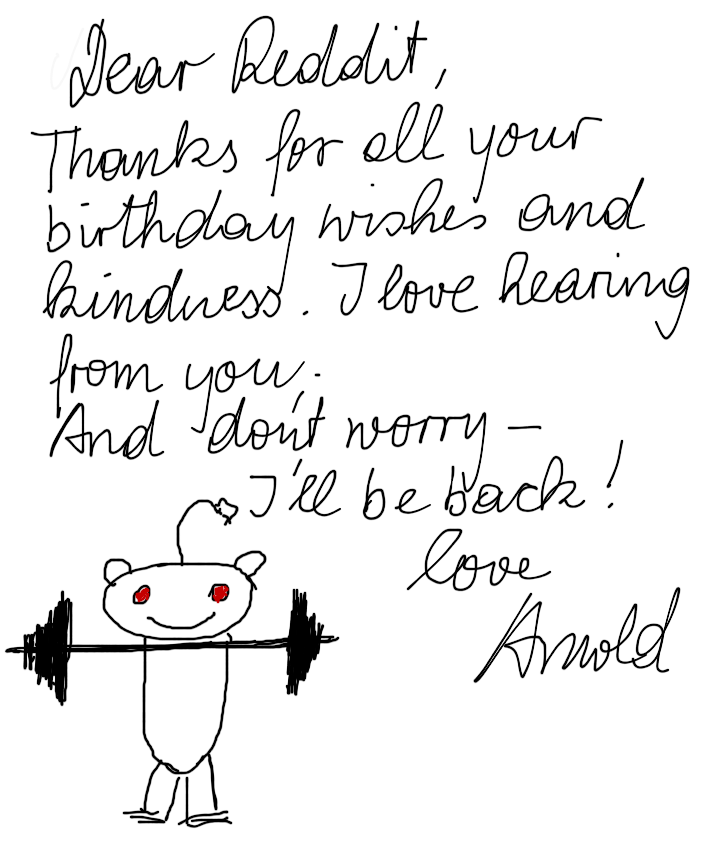 Dear Reddit,
Thanks for all your
birthday wishes and
kindness. I love hearing
from you.
And don't worry –
I'll be back!
love
Arnold